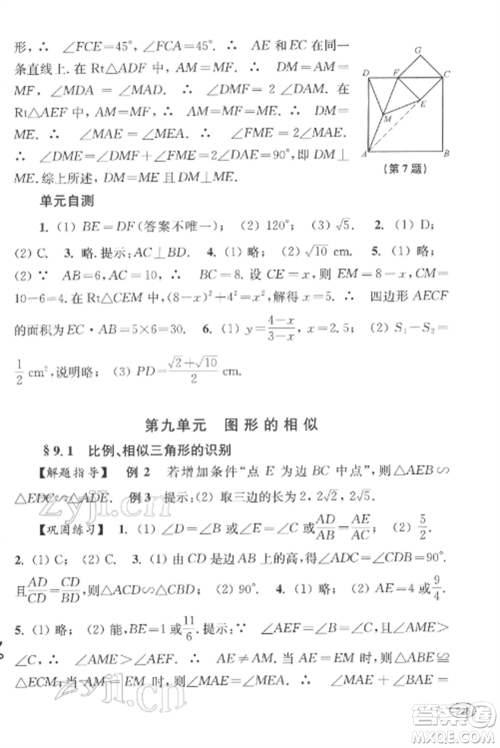 形，∴ ∠FCE=45°，∴ AE和EC在同一
条直线上.在Rt△ADF中，AM=MF，∴ DM=AM=
MF，∠MDA = ∠MAD. ∴ ∠DMF = 2∠DAM. 在
Rt△AEF中，AM=MF，∴ AM=MF=ME. ∴ DM=
ME. ∵ ∠MAE = ∠MEA. ∴ ∠FME = 2∠MAE.
∴ ∠DME=∠DMF+∠FME=2∠DAE=90°，∴ DM⊥
ME. 综上所述，DM=ME，DM⊥ME.
G
D F C
M E
A B
(第7题)
单元自测
1. (1) BE=DF(答案不唯一)； (2) 120°； (3) √5. 2. (1) D；
(2) C. 3. 略. 提示：AC⊥BD. 4. (1) 略； (2) √10 cm. 5. (1) 略；
(2) ∵ AB=6，AC=10，∴ BC=8. 设CE=x，则EM=8−x，CM=
10−6=4. 在Rt△CEM中，(8−x)²+4²=x²，解得x=5. ∴ 四边形AECF
的面积为EC·AB=5×6=30. 6. (1) y=(4−x)/(3−x)，x=2.5； (2) S₁−S₂=
1/2 cm²，说明略； (3) PD=(√2+√10)/2 cm.
第九单元 图形的相似
§9.1 比例、相似三角形的识别
【解题指导】 例2 若增加条件“点E为边BC中点”，则△AEB∽
△EDC∽△ADE. 例3 (1) 略； (2) 取三边的长为2，2√2，2√5.
【巩固练习】 1. (1) ∠D=∠B或∠C=∠AED或AD/AB=AE/AC； (2) 5/2.
2. (1) C； (2) B. 3. (1) 略； (2) 由CD是高，则∠ADC=∠CDB=90°.
且AD/CD=CD/BD，∴ △ACD∽△CBD，∴ ∠ACB=90°. 4. (1) 略； (2) AE=4或9.
5. (1) 略； (2) 能，BE=1或11/6. ∵ ∠AEF=∠B=∠C，且∠AME>
∠C，∴ ∠AME>∠AEF，∴ AE≠AM；当AE=EM时，则△ABE≌
△ECM；当AM=EM时，则∠MAE=∠MEA，∴ ∠MAE+∠BAE=
zyjl.cn